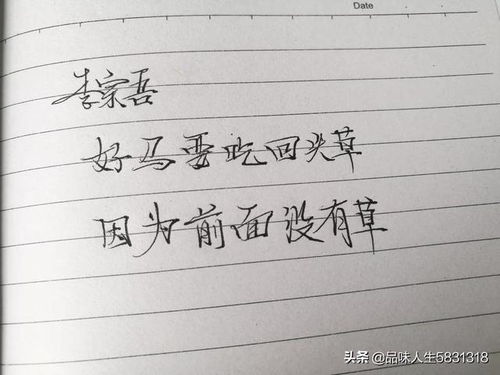 Date
李宗吾
好马要吃回头草
因为前面没有草
头条 @品味人生5831318